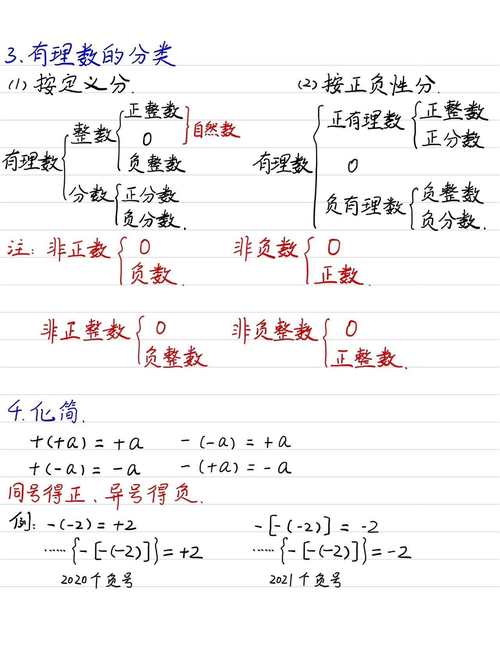 3.有理数的分类
(1)按定义分. (2)按正负性分.
有理数{整数{正整数 0 负整数 }自然数
分数{正分数 负分数.
有理数{正有理数{正整数 正分数
0
负有理数{负整数 负分数.
注:非正数{0 负数. 非负数{0 正数.
非正整数{0 负整数 非负整数{0 正整数.
4.化简.
+(+a)=+a -(-a)=+a
+(-a)=-a -(+a)=-a
同号得正、异号得负.
例:-(-2)=+2 -[-(-2)]=-2
……{-[-(-2)]}=+2 ……{-[-(-2)]}=-2
2020个负号 2021个负号